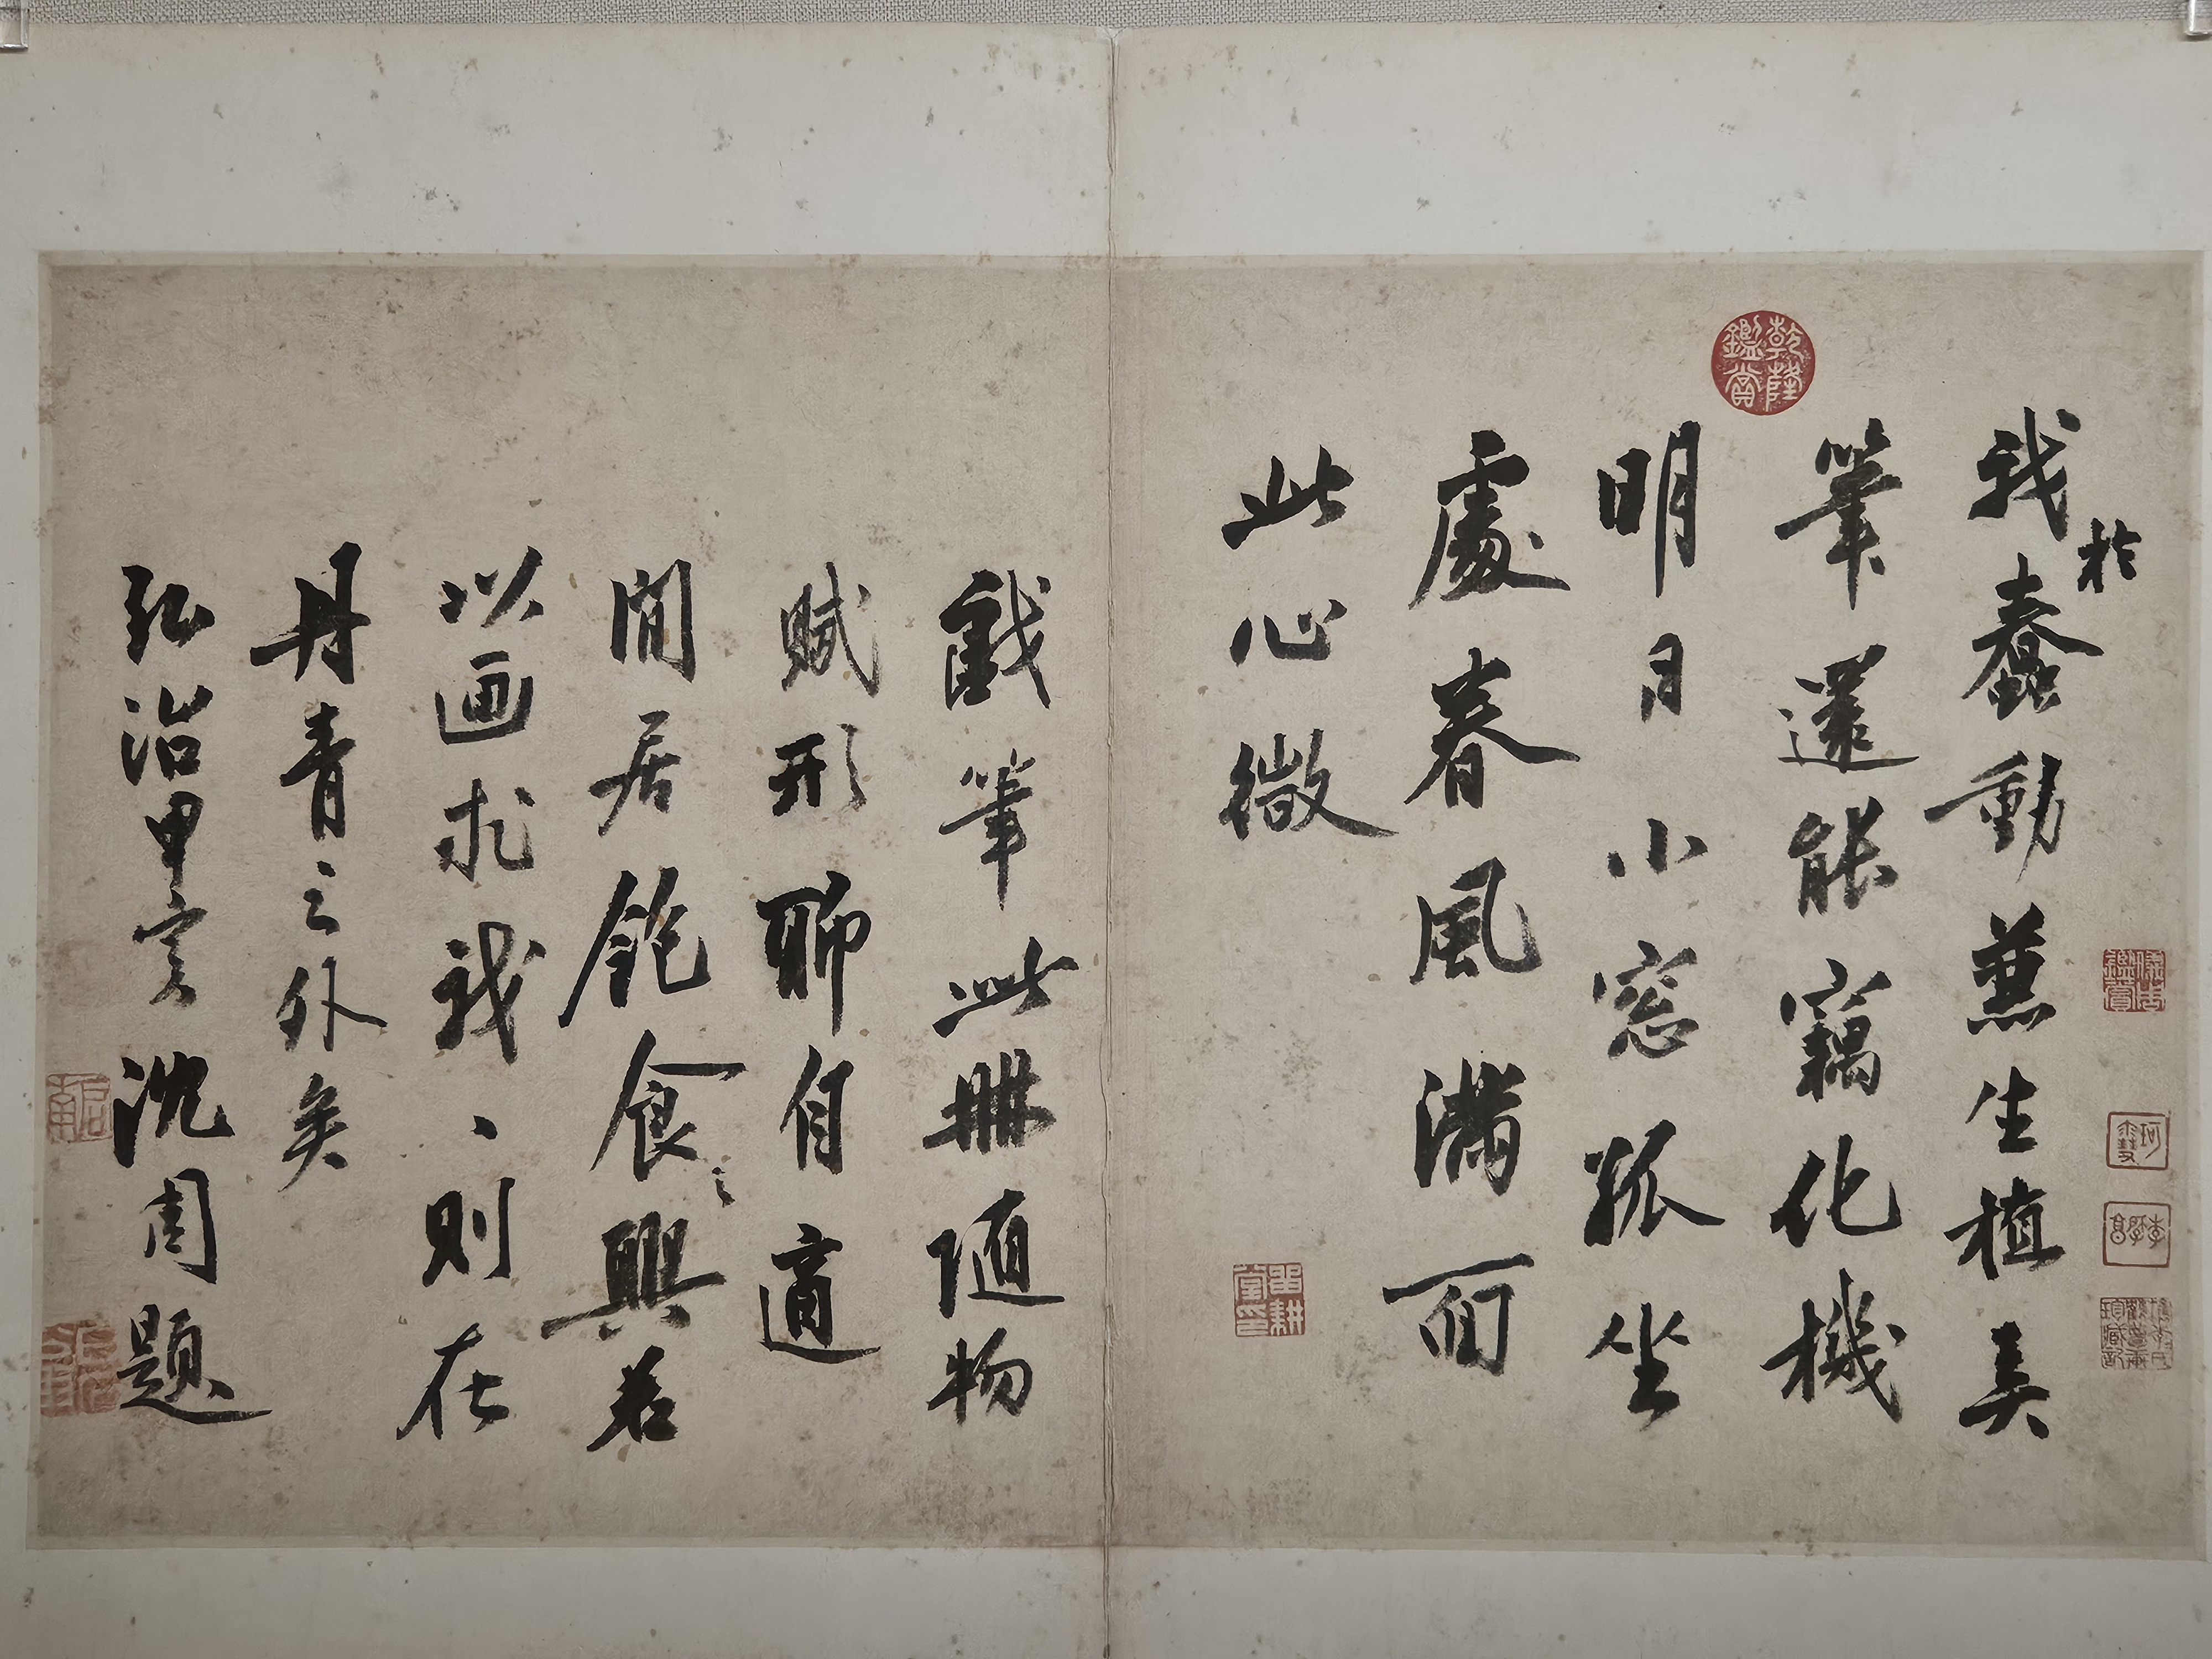 我於蠢動兼生植美
筆還能竊化機
明月小窓孤坐
處春風滿面
此心微
戲筆此冊隨物
賦形聊自適
閒居飽食之興若
以画求我、則在
丹青之外矣
弘治甲寅沈周題
乾隆
鑑賞